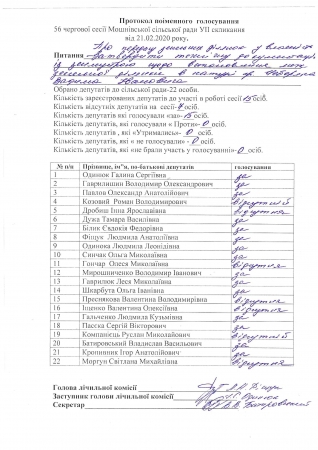 Протокол поіменного голосування
56 чергової сесії Мошнівської сільської ради VII скликання
від 21.02.2020 року.
Питання
Обрано депутатів до сільської ради-22 особи.
Кількість зареєстрованих депутатів до участі в роботі сесії 15 осіб.
Кількість відсутніх депутатів на сесії- осіб.
Кількість депутатів, які голосували «за»- 15 осіб.
Кількість депутатів, які голосували «Проти»- 0 осіб.
Кількість депутатів, які «Утримались»- 0 осіб.
Кількість депутатів, які « не голосували» - 0 осіб.
Кількість депутатів, які «не брали участь у голосуванні»- 0 осіб.
№ п/п Прізвище, ім"я, по-батькові депутатів голосування
1 Одинюк Галина Сергіївна за
2 Гаврилишин Володимир Олександрович за
3 Павлов Олександр Анатолійович за
4 Козовий Роман Володимирович відсутній
5 Дробиш Інна Ярославівна відсутня
6 Дужа Тамара Василівна за
7 Білик Євдокія Федорівна за
8 Фіщук Людмила Анатоліївна за
9 Одинока Людмила Леонідівна за
10 Синчак Ольга Миколаївна за
11 Гончар Олеся Миколаївна відсутня
12 Мирошниченко Володимир Іванович за
13 Гаврилюк Леся Миколаївна за
14 Шкарбута Ольга Іванівна за
15 Преснякова Валентина Володимирівна відсутня
16 Іщенко Валентина Олексіївна відсутня
17 Гальченко Людмила Кузьмівна за
18 Пасєка Сергій Вікторович за
19 Компанієць Руслан Миколайович відсутній
20 Батировський Владислав Васильович за
21 Кропивник Ігор Анатолійович за
22 Моргун Світлана Михайлівна відсутня
Голова лічильної комісії
Заступник голови лічильної комісії
Секретар